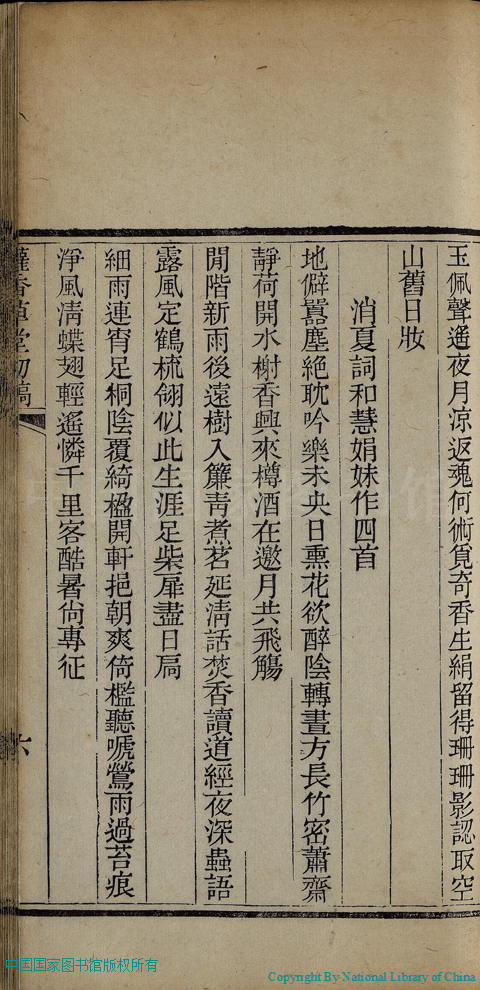 玉佩聲遙夜月涼返魂何術覓奇香生絹留得珊珊影認取空
山舊日妝
消夏詞和慧娟妹作四首
地僻囂塵絕耽吟樂未央日熏花欲醉陰轉晝方長竹密蕭齋
靜荷開水榭香興來樽酒在邀月共飛觴
閒階新雨後遠樹入簾青煮茗延清話焚香讀道經夜深蟲語
露風定鶴梳翎似此生涯足柴扉盡日扃
細雨連宵足桐陰覆綺櫳開軒挹朝爽倚檻聽嗁鶯雨過苔痕
淨風清蝶翅輕遙憐千里客酷暑尙專征
香草堂初稿
六
中国国家图书馆版权所有
Copyright By National Library of China